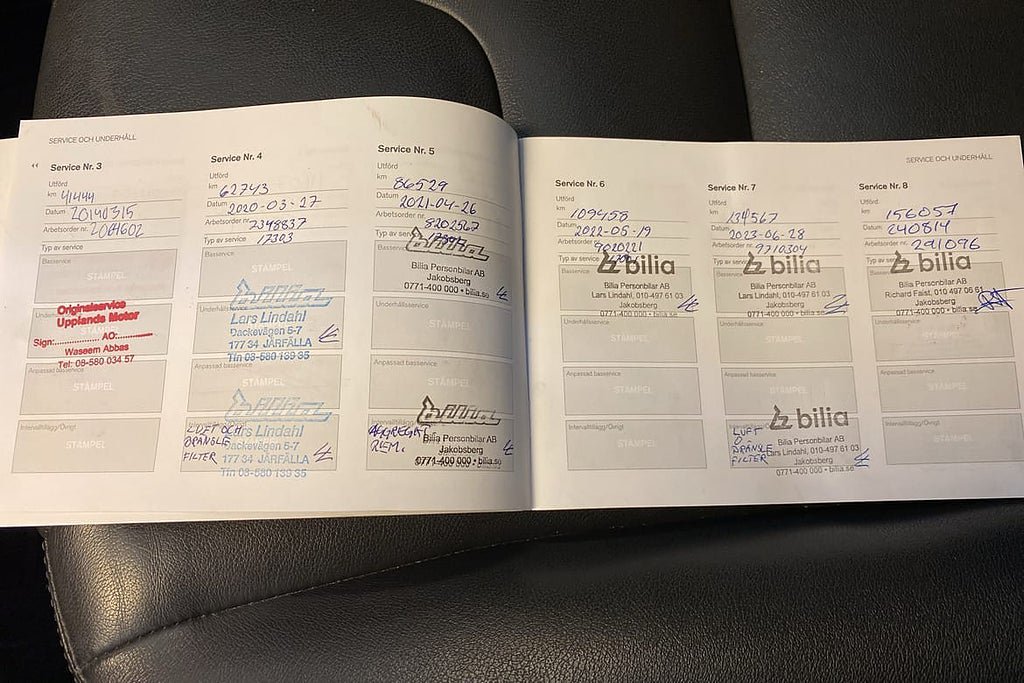 SERVICE OCH UNDERHÅLL
Service Nr. 3
Utförd
km 41444
Datum 20190315
Arbetsorder nr.
Typ av service
Basservice
STÄMPEL
Originalservice
Upplands Motor
Sign:............... AO:...............
Waseem Abbas
Tel: 08-580 034 57
Anpassad basservice
STÄMPEL
Intervalltillägg/Övrigt
STÄMPEL
Service Nr. 4
Utförd
km 62743
Datum 2020-03-27
Arbetsorder nr. 7348837
Typ av service 17303
Basservice
STÄMPEL
Bilia
Lars Lindahl
Dackevägen 5-7
177 34 JÄRFÄLLA
Tfn 08-580 139 35
Anpassad basservice
STÄMPEL
Intervalltillägg/Övrigt
LUFT OCH
BRÄNSLE
FILTER
Bilia
Lars Lindahl
Dackevägen 5-7
177 34 JÄRFÄLLA
Tfn 08-580 139 35
Service Nr. 5
Utförd
km 86529
Datum 2021-04-26
Arbetsorder nr. 8202567
Typ av service
Bilia
Bilia Personbilar AB
Jakobsberg
0771-400 000 • bilia.se
Underhållsservice
STÄMPEL
Anpassad basservice
STÄMPEL
AGGREGAT
REM.
Bilia
Bilia Personbilar AB
Jakobsberg
0771-400 000 • bilia.se
SERVICE OCH UNDERHÅLL
Service Nr. 6
Utförd
km 109458
Datum 2022-05-19
Arbetsorder 9020221
Typ av
bilia
Basservice
Bilia Personbilar AB
Lars Lindahl, 010-497 61 03
Jakobsberg
0771-400 000 • bilia.se
Underhållsservice
STÄMPEL
Anpassad basservice
STÄMPEL
Intervalltillägg/Övrigt
STÄMPEL
Service Nr. 7
Utförd
km 134567
Datum 2023-06-28
Arbetsorder 9710304
Typ av
bilia
Basservice
Bilia Personbilar AB
Lars Lindahl, 010-497 61 03
Jakobsberg
0771-400 000 • bilia.se
Underhållsservice
STÄMPEL
Anpassad basservice
STÄMPEL
Intervalltillägg/Övrigt
bilia
LUFT
O
BRÄNSLE
FILTER
Bilia Personbilar AB
Lars Lindahl, 010-497 61 03
Jakobsberg
0771-400 000 • bilia.se
Service Nr. 8
Utförd
km 156057
Datum 240814
Arbetsorder nr. 291096
Typ av
bilia
Basservice
Bilia Personbilar AB
Richard Faist, 010 497 06 61
Jakobsberg
0771-400 000 • bilia.se
Underhållsservice
STÄMPEL
Anpassad basservice
STÄMPEL
Intervalltillägg/Övrigt
STÄMPEL